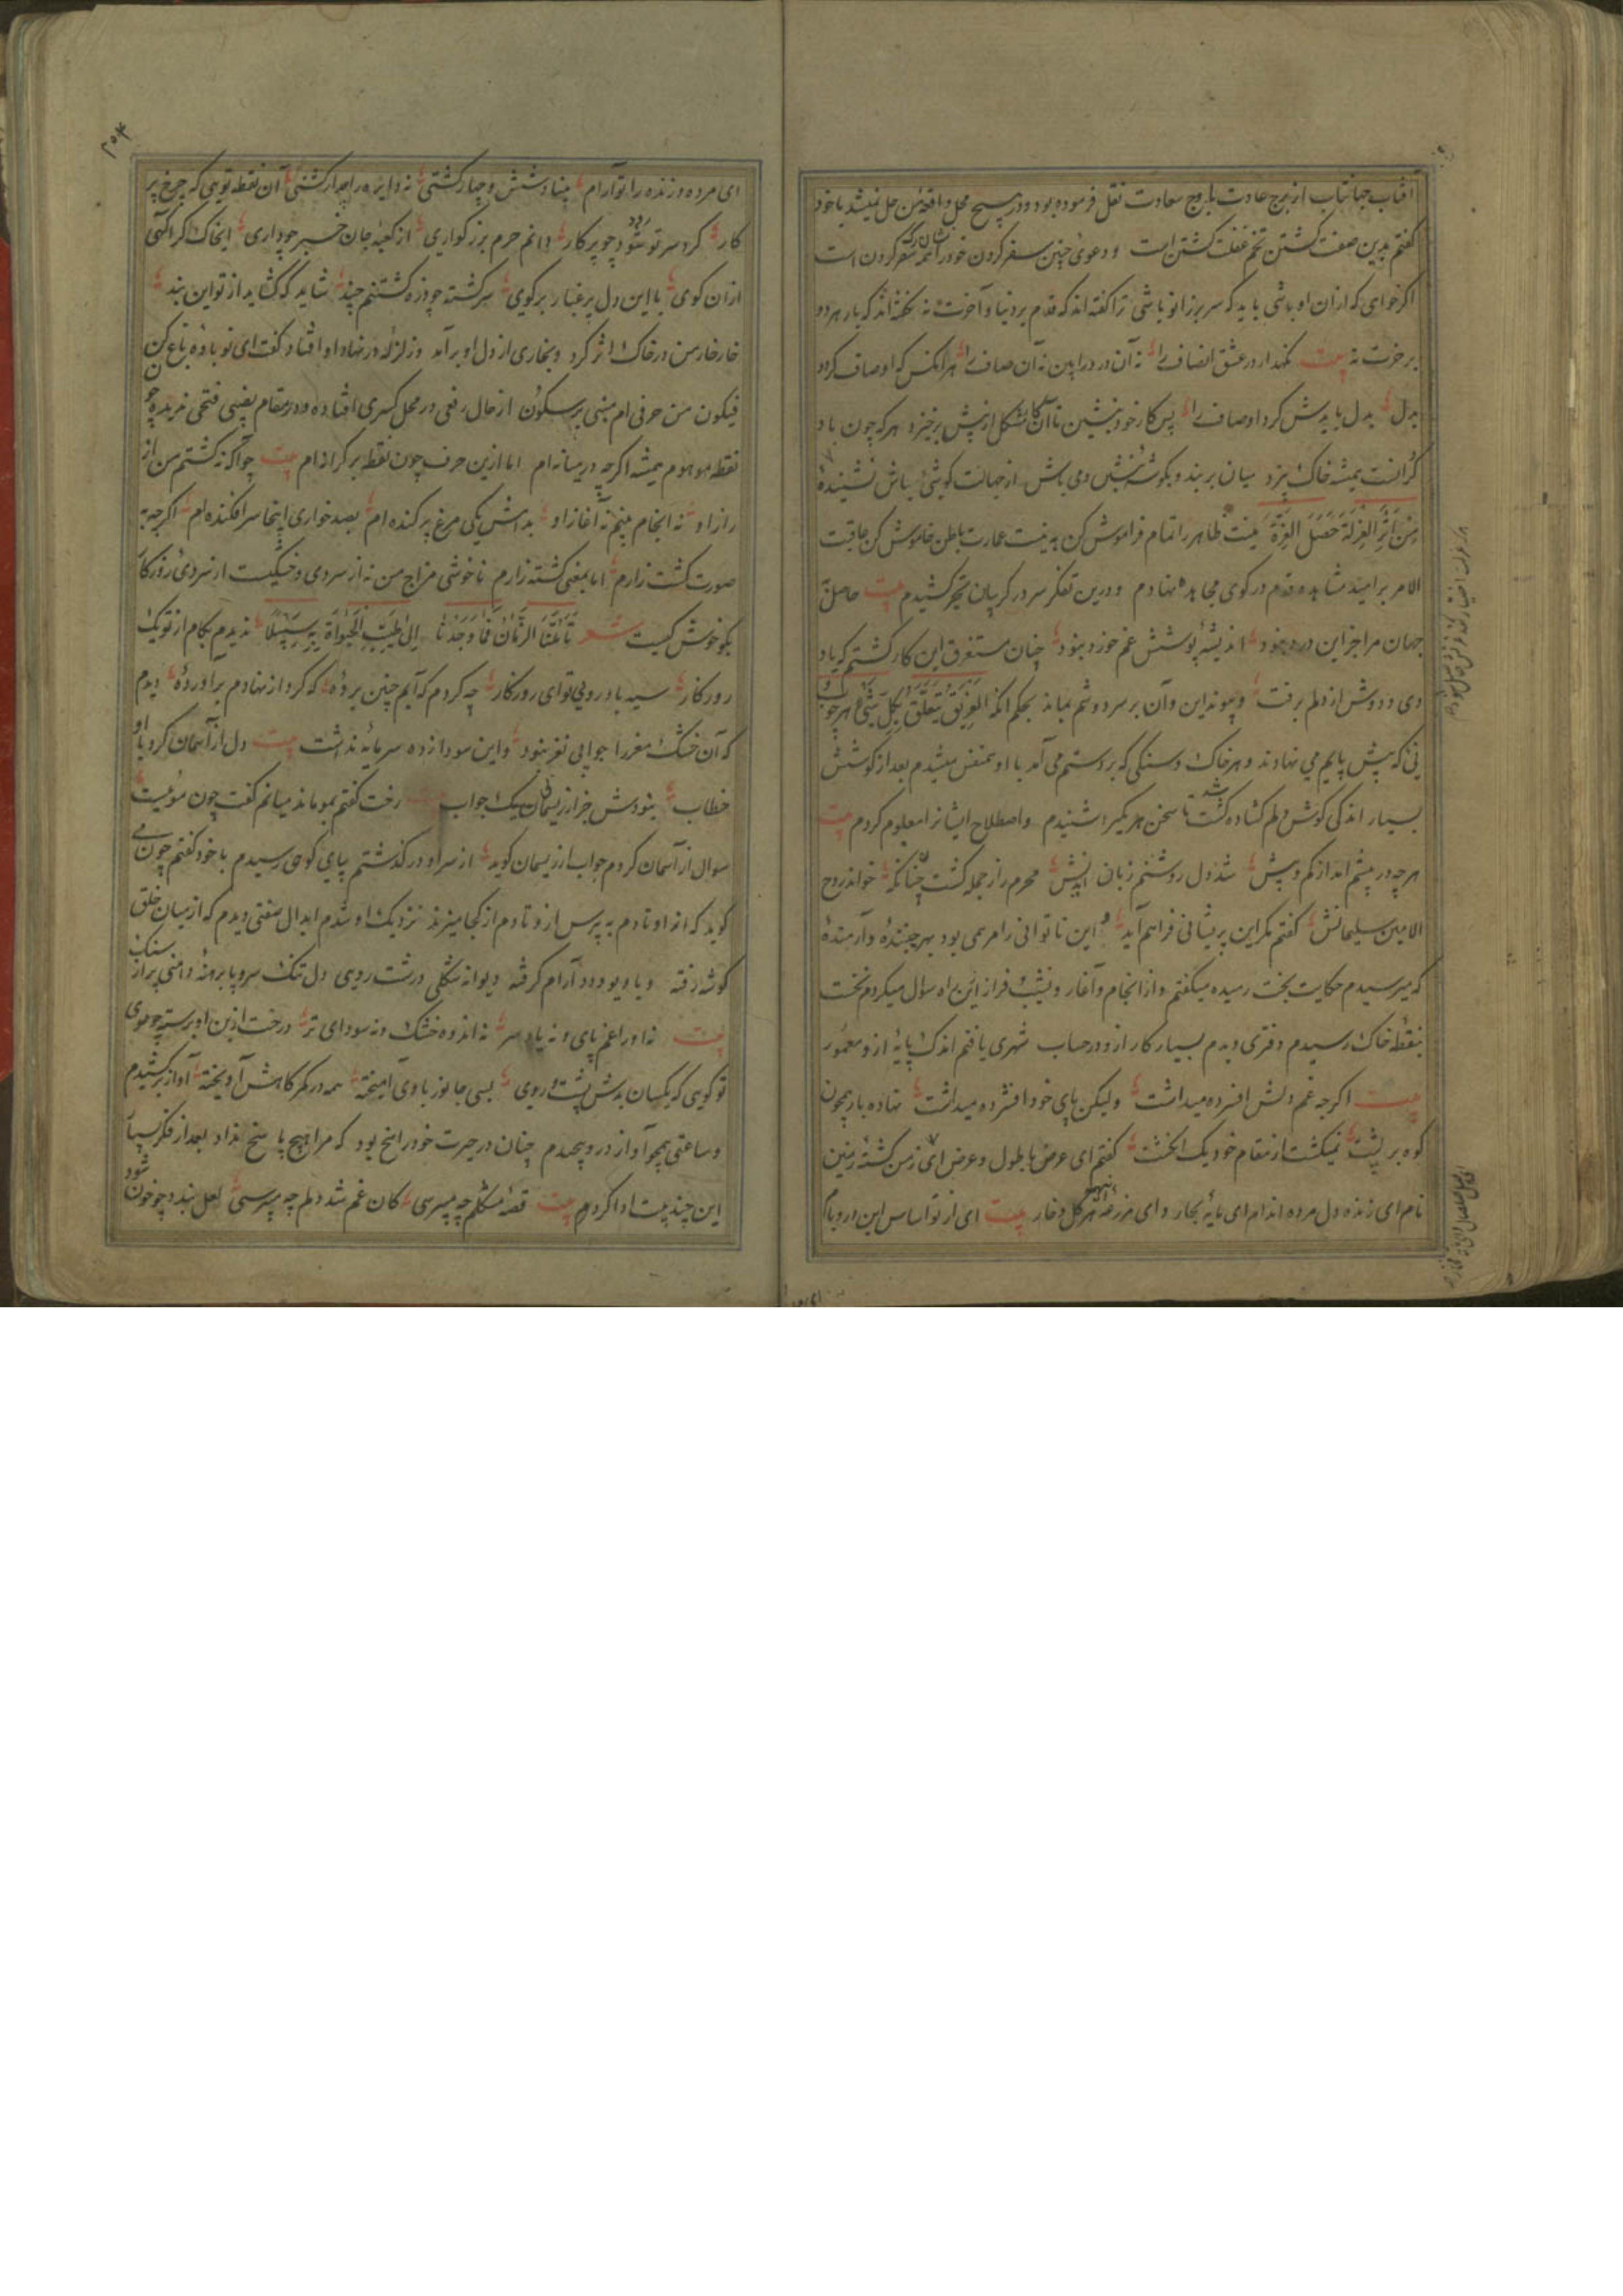 آفتاب جهانتاب از برج عادت باوج سعادت نقل فرموده بود و در هیچ محل واقعهٔ من حل نمیشد با خود
گفتم بدین صفت گشتن تخم غفلت کشتن است و دعوی چنین سفر کردن خود را سقر کردن است
اگر خواهی که از آن او باشی باید که سر بر زانو باشی ترا گفته‌اند که قدم بر دنیا و آخرت نه نگفته‌اند که بار هر دو
بر خرت نه بیت نگهدار در عشق انصاف را نه آن درد را بین نه آن صاف را هر آنکس که او صاف کرد
بدل بدل بایدش کرد اوصاف را پس کار خود بنشین تا آن مشکل از پیش برخیزد هر که چون باد
گرانست همیشه خاک بیزد میان بربند و بگوشهٔ بنشین و می باش از جهانت گوشهٔ باش نشینده
مِنْ اَثَرِ العِزلَة حَصَلَ العِزَّة نیت ظاهر را تمام فراموش کن به نیت عمارت باطن خاموش کن عاقبت
الامر بر امید مشاهده قدم در کوی مجاهده نهادم و درین تفکر سر در گریبان تحیر کشیدم بیت حاصل
جهان مرا جز این درد نبود اندیشهٔ پوشش غم خورد نبود چنان مستغرق این کار گشتم که یاد
دی و دوش از دلم برفت و پیوند این و آن بر سر دوشم نماند بحکم آنکه الغریق یتعلق بکل شیء هر چوب و
نی که پیش پایم می نهادند و هر خاک و سنگی که بر دستم می آمد با او متنفس میشدم بعد از کوشش
بسیار اندکی گوش دلم گشاده گشت تا سخن هر یکی را شنیدم و اصطلاح ایشانرا معلوم کردم بیت
هر چه در پیشم آمد از کم و بیش شد دل روشنم زبان اندیش محرم راز جمله گشت چنانکه خواند روح
الامین سلیمانش گفتم مگر این پریشانی فراهم آید و این ناتوانی را مرهمی بود بهر جنبنده و آرمنده
که میرسیدم حکایت بخت رسیده میگفتم و از انجام و آغاز و نشیب و فراز این راه سؤال میکردم نخست
بنقطه خاک رسیدم دفتری دیدم بسیار کار ازو در حساب شهری یافتم اندک پایه ازو معمور
بیت اگرچه غم دلش افسرده میداشت ولیکن پای خود افشرده میداشت نهاده بار همچون
کوه بر پشت نمیگشت از مقام خود یک انگشت گفتم ای عرض با طول و عرض ای زمن گشته زمین
نام ای زنده دل مرده اندام ای مایهٔ بخار و ای مزرعهٔ هر گل و خار بیت ای از تو اساس این
ای مرده و زنده را تو آرام بیناد شش و چهار گشتی نه دایره را مدار گشتی آن نقطه تویی که چرخ پر
کار گرد سر تو رود چو پرکار دانم حرم بزرگواری از کعبهٔ جان خبر چه داری ای خاک گر آگهی
از آن کوی با این دل پرغبار برگوی سرگشته چو ذره گشتنم چند شاید که گشاید از تو این بند
خار خار من در خاک اثر کرد و بخاری از دل او برآمد و زلزله در نهاد او افتاد گفت ای نوباوهٔ باغ کن
فیکون من حرفی ام مبنی بر سکون از حال رفعی در محل کسری افتاده و در مقام یقینی فتحی ندیده چو
نقطه موهوم همیشه اگرچه در میانه ام اما ازین حرف چون نقطه بر کرانه ام بیت چو آگه نگشتم من از
راز او نه انجام بینم نه آغاز او بدامش یکی مرغ پرکنده ام بصد خواری اینجا سرافکنده ام اگرچه به
صورت کشت زارم اما بمعنی کشته زارم ناخوشی مزاج من نه از سردی و خشکیست از سردی روزگار
بگو خوش کیست شعر تأملنا الزمان فما وجدنا الی طیب الحیواة به سبیلا ندیدم بکام از تو یک
روزگار سیه باد روی تو ای روزگار چه کردم که آیم چنین برده که گرد از نهادم برآورده دیدم
که آن خشک مغز را جوابی نغز نبود و این سودا زده سرمایه نداشت بیت دل از آسمان کرد با او
خطاب نبودش جز از ریسمان یک جواب بیت رخت گفتم بمو ماند میانم گفت چون موئیست
سوال از آسمان کردم جواب از ریسمان گوید از سر او درگذشتم بپای کوهی رسیدم با خود گفتم چون می
گوید که انا اوتادم به پرس از و تا دم از کجا میزند نزدیک او شدم ابدال صفتی دیدم که از میان خلق
گوشه رفته و با دیو و دد آرام گرفته دیوانه شکلی درشت روی دل تنگ سر و پا برهنه و دامنی پر از سنگ
بیت نه او را غم پای و نه یاد سر نه اندوه خشک و نه سودای تر درخت از بن او برسته چو موی
تو گویی که یکسان بدش پشت و روی بسی جانور با وی آمیخته همه در کمرگاهش آویخته آواز برکشیدم
و ساعتی همچو آواز در و پیچیدم چنان در حیرت خود راسخ بود که مرا هیچ پاسخ نداد بعد از فکر بسیار
این چند بیت ادا کردم بیت قصهٔ مشکلم چه میپرسی کان غم شد دلم چه میپرسی لعل بندد چو خون شود